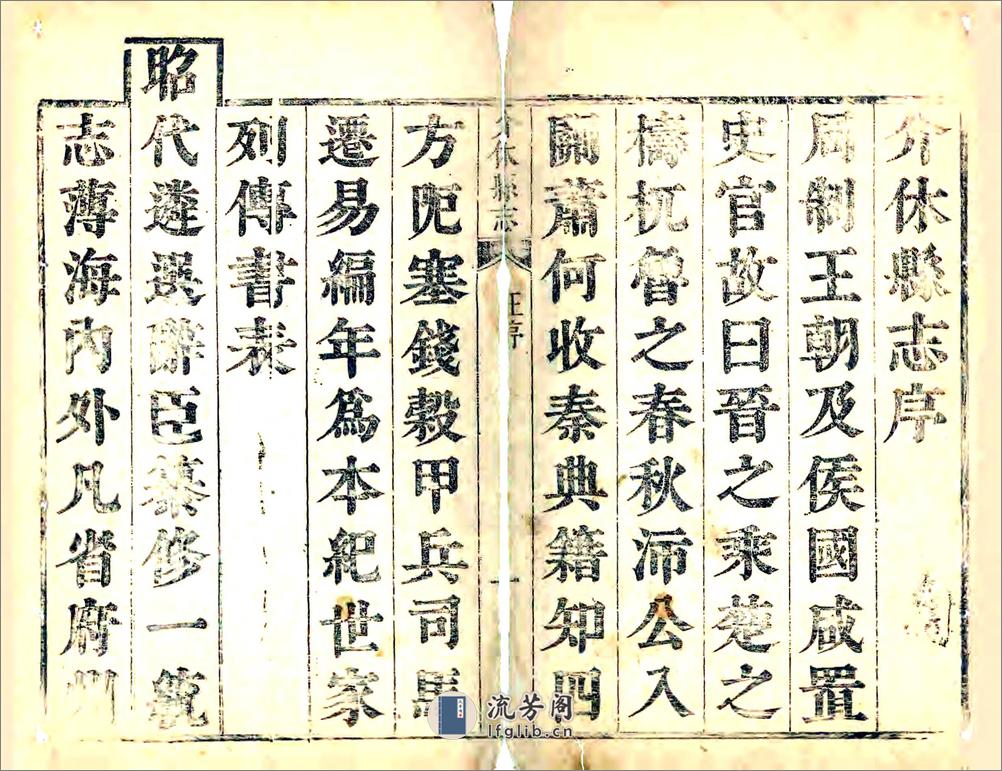 介休縣志序
周制王朝及侯國咸置
史官故曰晉之乘楚之
檮杌魯之春秋沛公入
關蕭何收秦典籍知四
介休縣志
王序
一
方阨塞錢穀甲兵司馬
遷易編年為本紀世家
列傳書表
昭
代遴選辭臣纂修一統
志薄海內外凡省府州
流芳阁
lfglib.cn